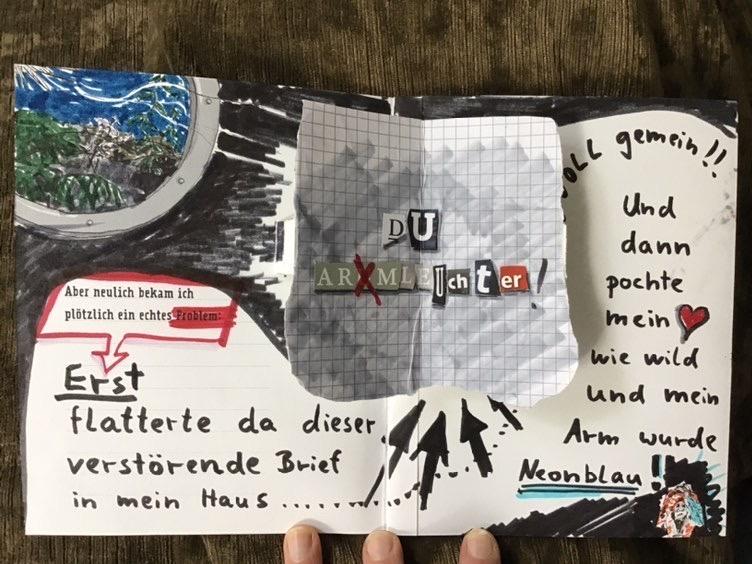 Aber neulich bekam ich
plötzlich ein echtes Problem:
Erst
flatterte da dieser
verstörende Brief
in mein Haus........
DU
ARXMLEUchter!
VOLL gemein!!
Und
dann
pochte
mein ❤
wie wild
und mein
Arm wurde
Neonblau!